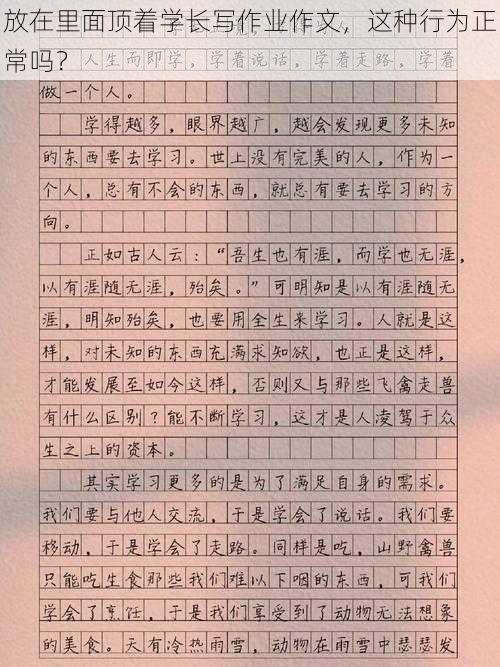 放在里面顶着学长写作业作文，这种行为正
常吗？
人生而即学，学着说话，学着走路，学着
做一个人。
学得越多，眼界越广，越会发现更多未知
的东西要去学习。世上没有完美的人，作为一
个人，总有不会的东西，就总有要去学习的方
向。
正如古人云：“吾生也有涯，而学也无涯，
以有涯随无涯，殆矣。”可明知是以有涯随无
涯，明知殆矣，也要用全生来学习。人就是这
样，对未知的东西充满求知欲，也正是这样，
才能发展至如今这样，否则又与那些飞禽走兽
有什么区别？能不断学习，这才是人凌驾于众
生之上的资本。
其实学习更多的是为了满足自身的需求。
我们要与他人交流，于是学会了说话。我们要
移动，于是学会了走路。同样是吃，山野禽兽
只能吃生食那些我们难以下咽的东西，可我们
学会了烹饪，于是我们享受到了动物无法想象
的美食。天有冷热雨雪，动物在雨雪中瑟瑟发